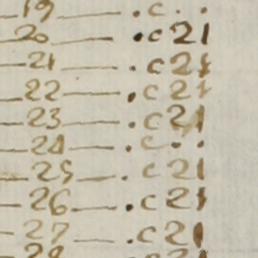 19 — . c . .
20 — . c 21
21 — . c 21
22 — . c 21
23 — . c 21
24 — . c . .
25 — . c 21
26 — . c 21
27 — . c 21